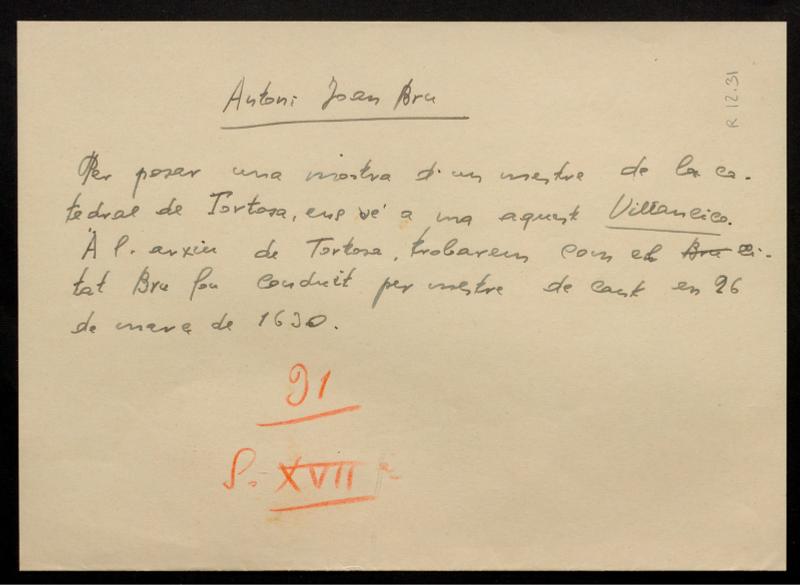 Antoni Joan Bru
R 12.31
Per posar una mostra d'un mestre de la ca-
tedral de Tortosa, ens vé a ma aquest Villancico.
A l'arxiu de Tortosa, trobarem com el Bru ci-
tat Bru fou conduit per mestre de cant en 26
de març de 1630.
91
S. XVII